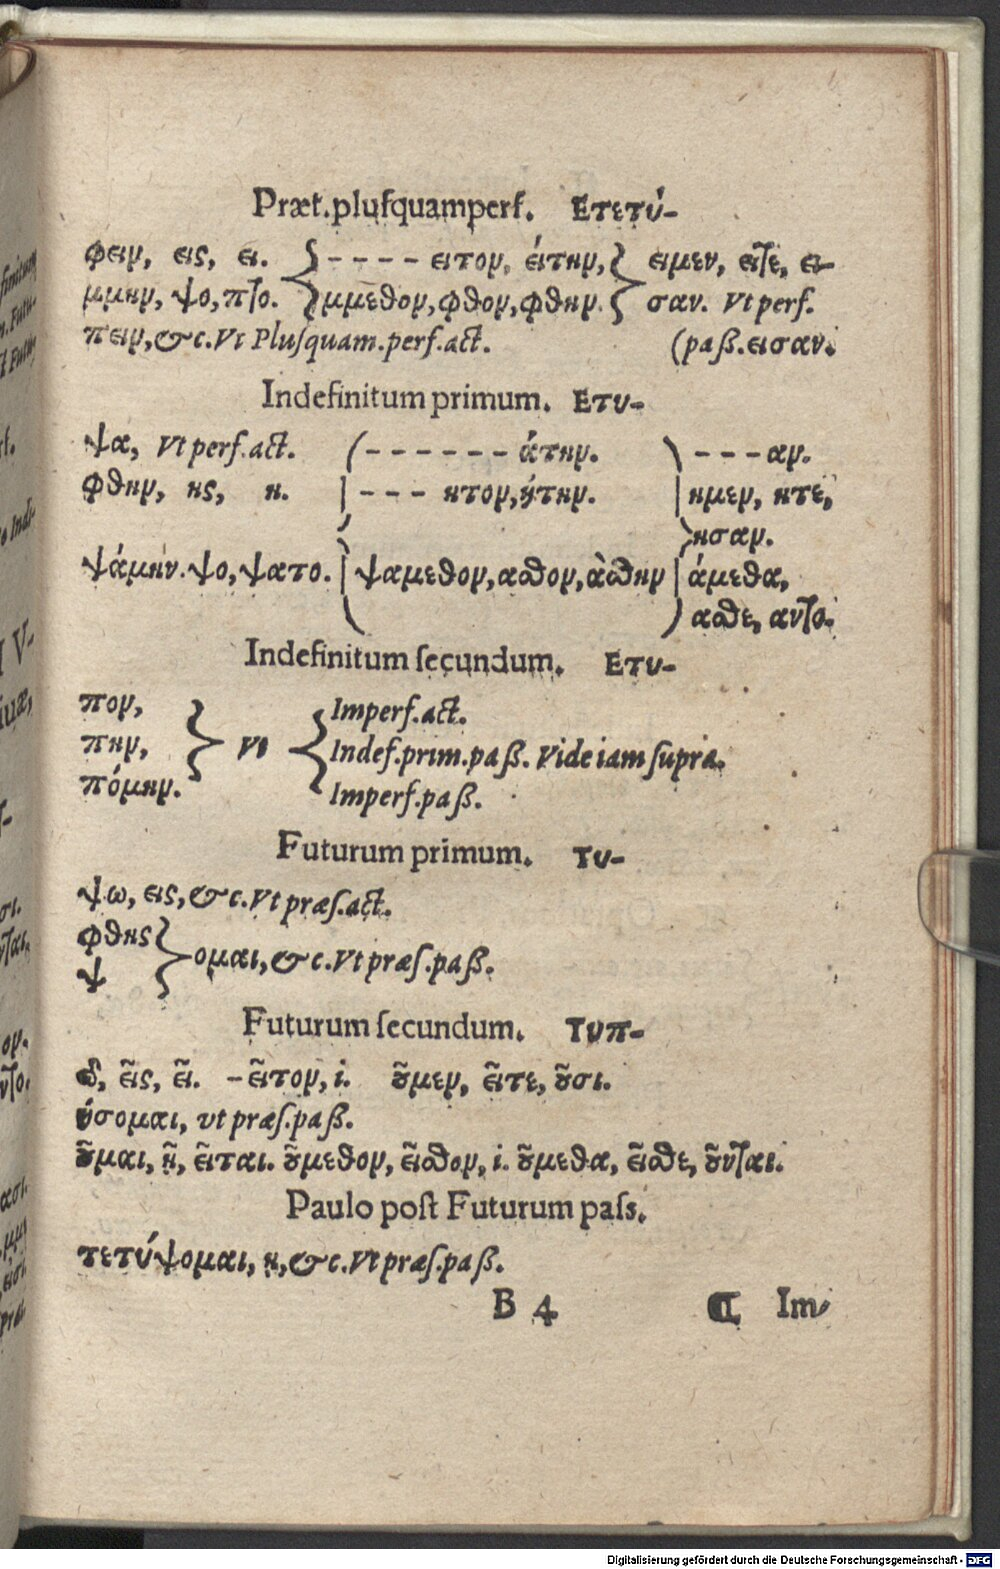 Præt.pluſquamperf. Ετετύ-
φειν, εις, ει. - - - - ειτον, είτην, ειμεν, ειτε, ει-
μμην, ψο, πτο. μμεθον, φθον, φθην. σαν. Vt perf.
πειν, &c. Vt Pluſquam.perf.act. (paß. εισαν.
Indefinitum primum. Ετυ-
ψα, Vt perf.act. - - - - - - άτην. - - - αν.
φθην, ης, η. - - - ητον, ήτην. ημεν, ητε,
ησαν.
ψάμην. ψο, ψατο. ψαμεθον, ασθον, άσθην άμεθα,
ασθε, αντο.
Indefinitum ſecundum. Ετυ-
πον, Imperf.act.
πην, Vt Indef.prim.paß. Vide iam ſupra.
πόμην. Imperf.paß.
Futurum primum. Τυ-
ψω, εις, &c. Vt præſ.act.
φθης
ψ ομαι, &c. Vt præſ.paß.
Futurum ſecundum. Τυπ-
ῶ, εῖς, εῖ. - εῖτον, i. οῦμεν, εῖτε, οῦσι.
ύσομαι, vt præſ.paß.
οῦμαι, ῇ, εῖται. οῦμεθον, εῖσθον, i. οῦμεθα, εῖσθε, οῦνται.
Paulo poſt Futurum paſs.
τετύψομαι, η, &c. Vt præſ.paß.
B 4 ❡ Im-
Digitalisierung gefördert durch die Deutsche Forschungsgemeinschaft - DFG